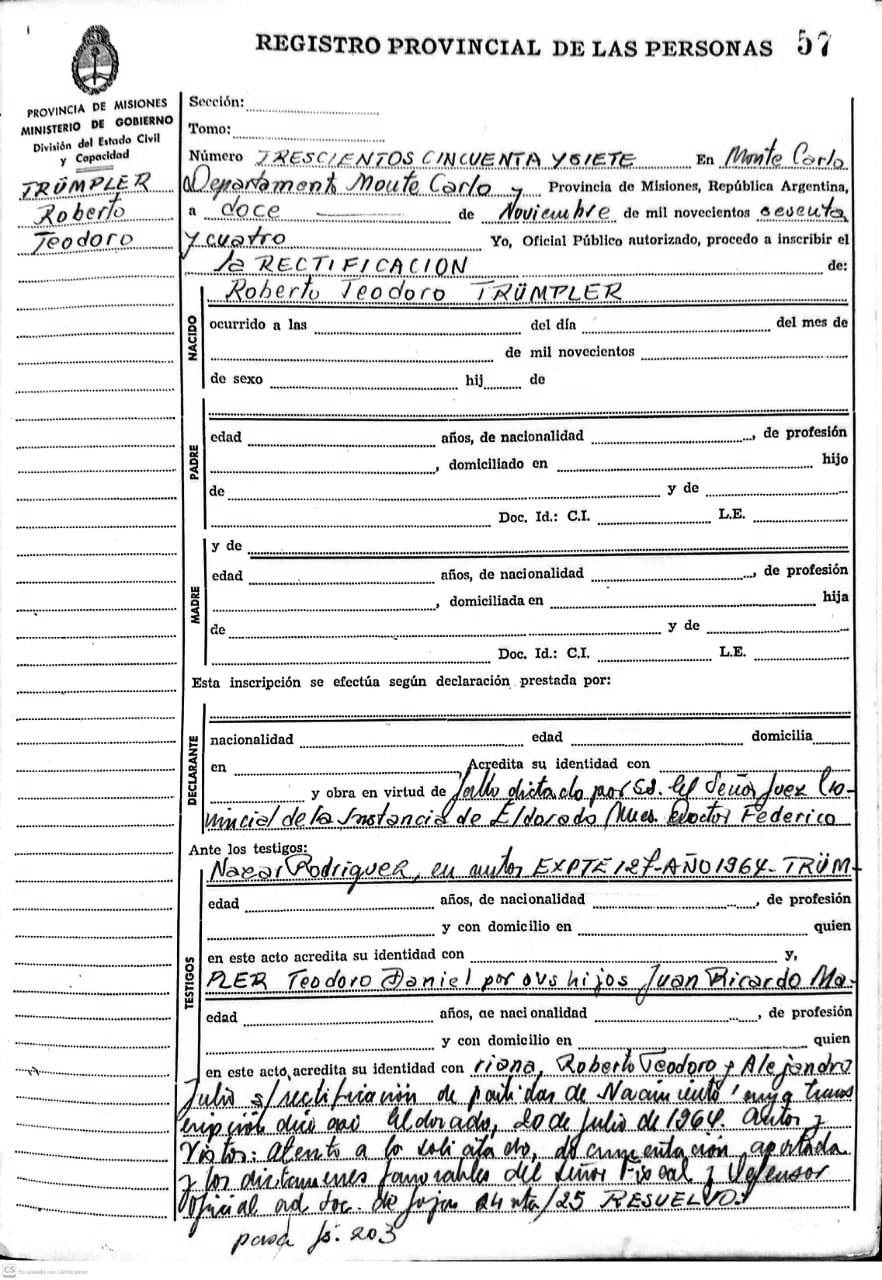 REGISTRO PROVINCIAL DE LAS PERSONAS 57
PROVINCIA DE MISIONES
MINISTERIO DE GOBIERNO
División del Estado Civil
y Capacidad
TRÜMPLER
Roberto
Teodoro
Sección:
Tomo:
Número TRESCIENTOS CINCUENTA Y SIETE En Monte Carlo
Departament Monte Carlo y Provincia de Misiones, República Argentina,
a doce de Noviembre de mil novecientos sesenta
y cuatro Yo, Oficial Público autorizado, procedo a inscribir el
la RECTIFICACION de:
Roberto Teodoro TRÜMPLER
NACIDO
ocurrido a las del día del mes de
de mil novecientos
de sexo hij de
PADRE
edad años, de nacionalidad , de profesión
, domiciliado en hijo
de y de
Doc. Id.: C.I. L.E.
MADRE
y de
edad años, de nacionalidad , de profesión
, domiciliada en hija
de y de
Doc. Id.: C.I. L.E.
Esta inscripción se efectúa según declaración prestada por:
DECLARANTE
nacionalidad edad domicilia
en Acredita su identidad con
y obra en virtud de fallo dictado por S.S. el Señor Juez Pro-
vincial de 1a Instancia de Eldorado Mnes. Doctor Federico
Ante los testigos:
TESTIGOS
Rodriguez, en autos EXPTE 127-AÑO 1964- TRÜM-
edad años, de nacionalidad , de profesión
y con domicilio en quien
en este acto acredita su identidad con y,
PLER Teodoro Daniel por sus hijos Juan Ricardo Ma-
edad años, de nacionalidad , de profesión
y con domicilio en quien
en este acto, acredita su identidad con riana, Roberto Teodoro y Alejandro
Julio s/rectificación de partidas de Nacimiento" cuya trans
cripción dice así Eldorado, 20 de Julio de 1964. Autos y
Vistos: Atento a lo solicitado, documentación aportada
y los dictamenes favorables del Señor Fiscal y Defensor
Oficial ad hoc. de fojas 24 vta/25 RESUELVO:
pasa fs. 203
CS Escaneado con CamScanner